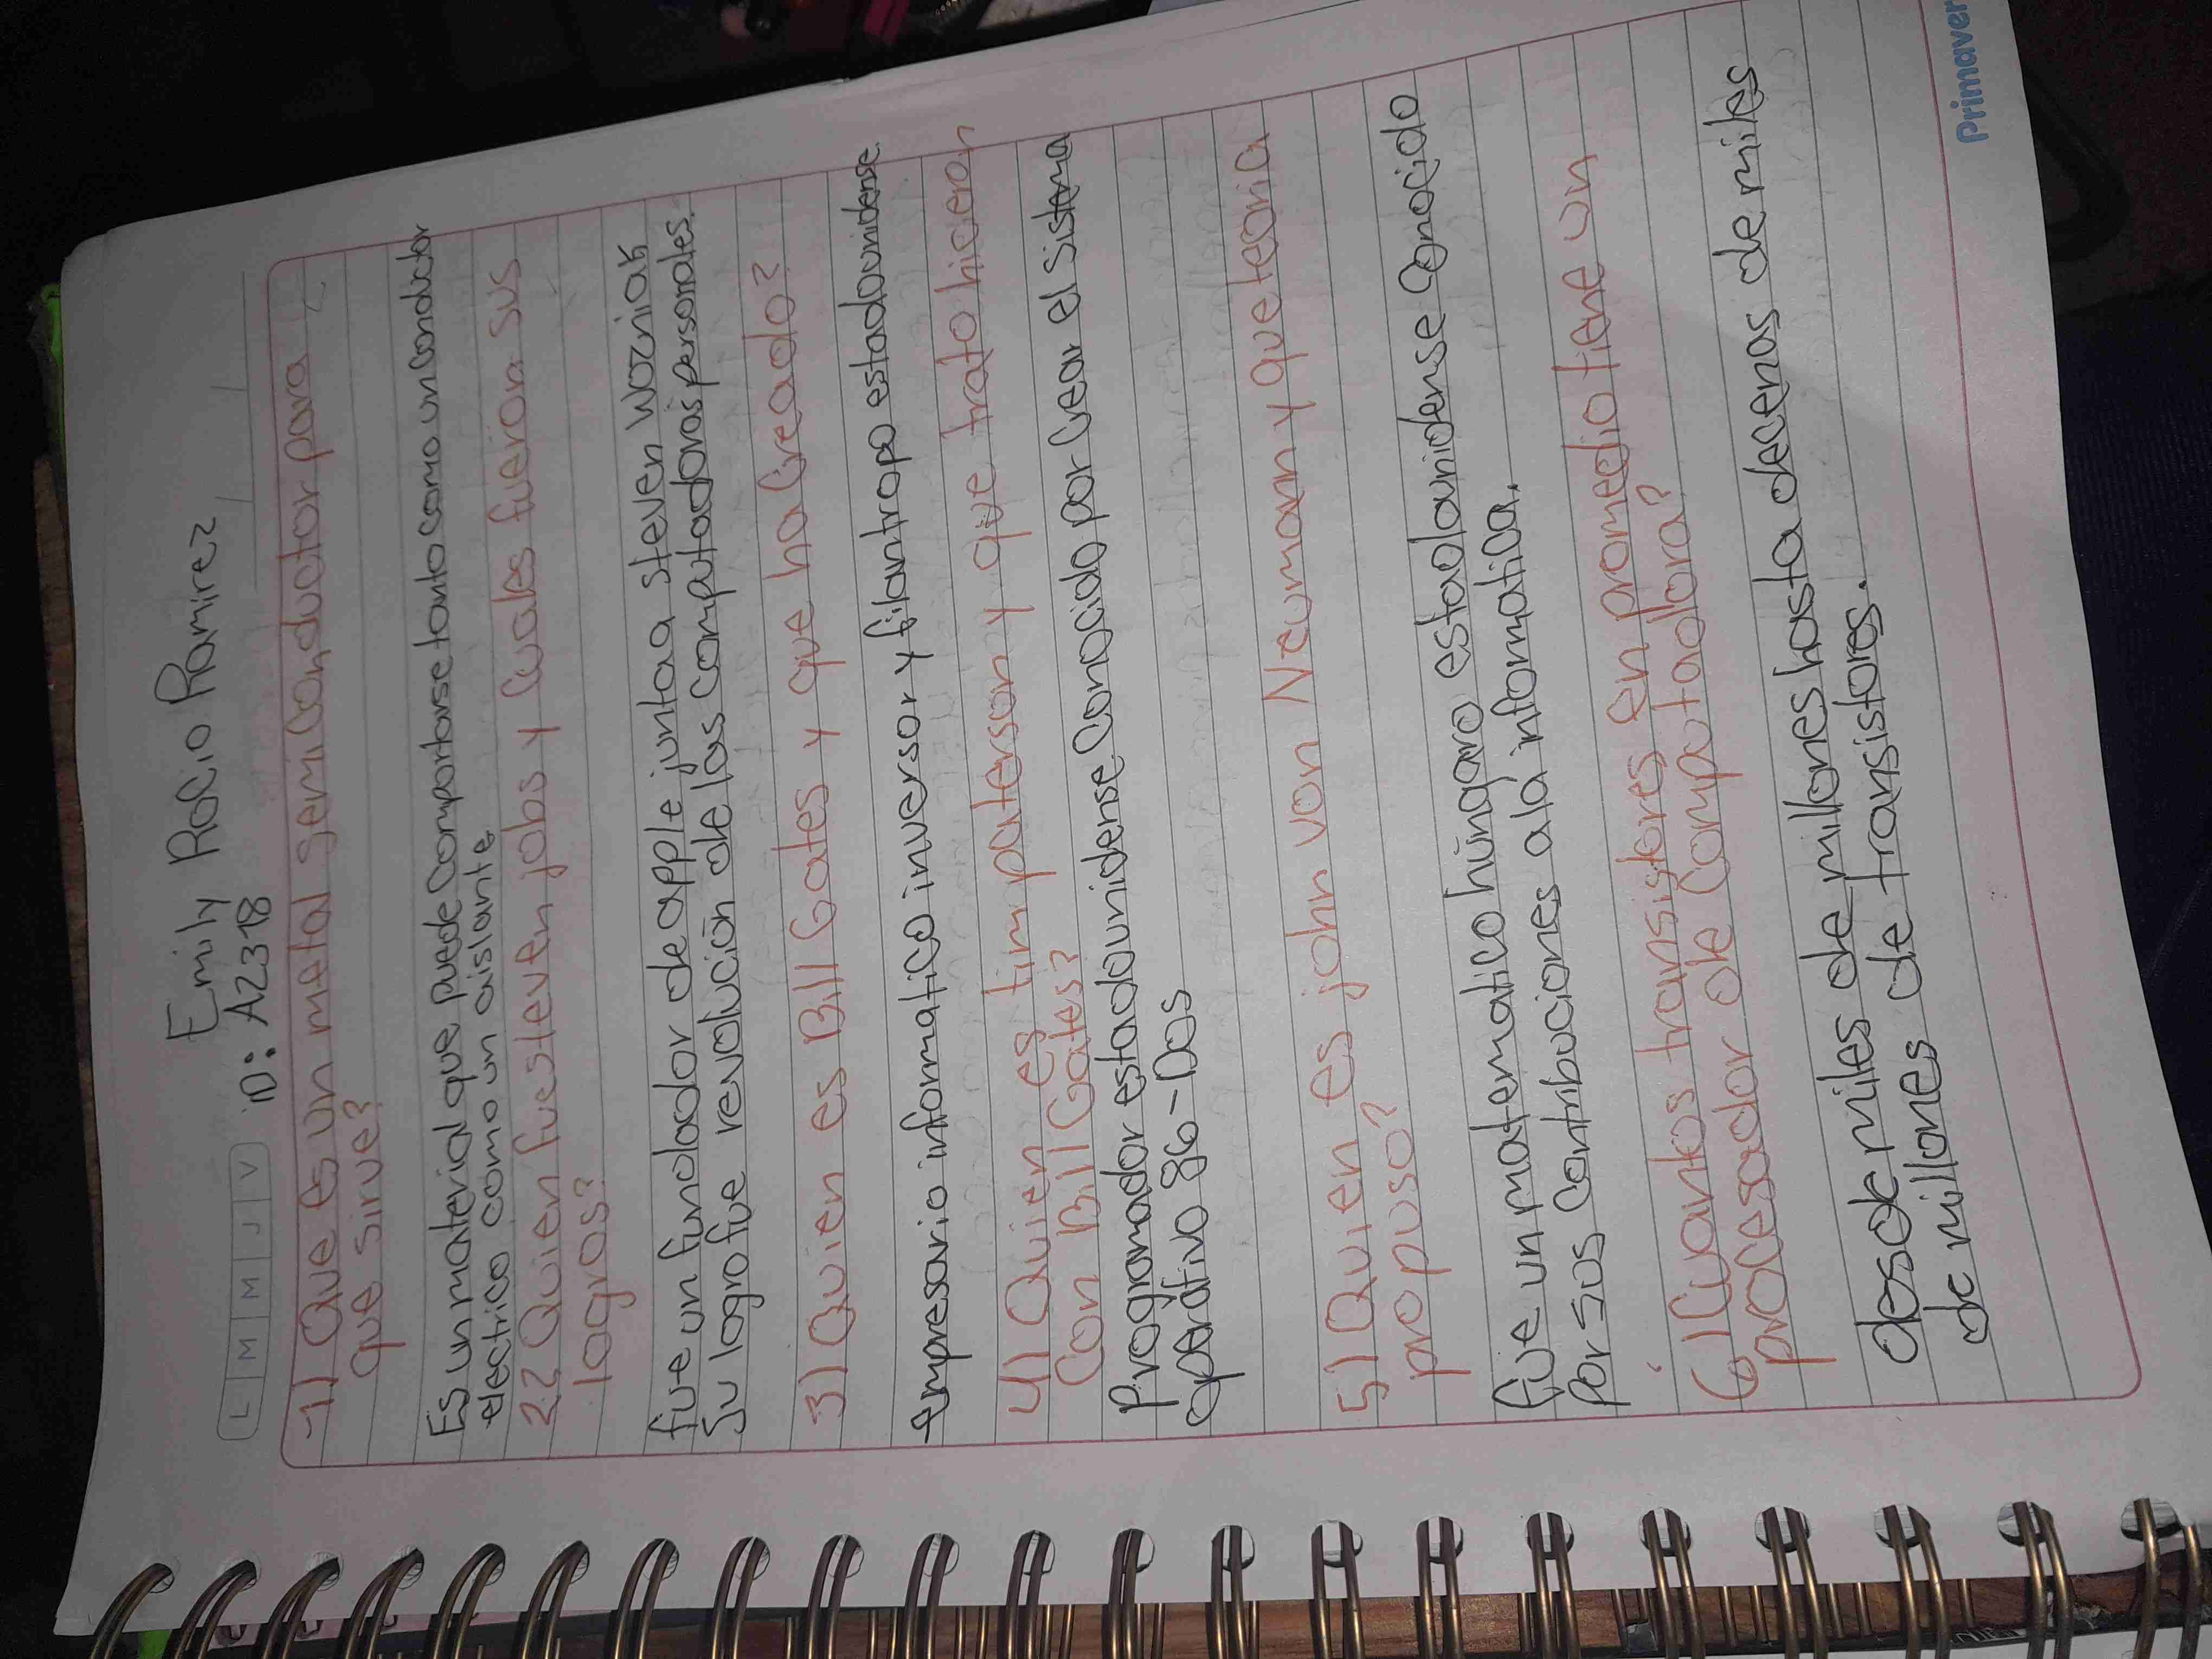 Emily Rocio Ramirez
L M M J V iD: A2318
1) Que es un metal semiconductor para
que sirve?
Es un material que puede comportarse tanto como un conductor
electrico como un aislante
2) Quien fue steven jobs y cuales fueron sus
logros?
fue un fundador de apple junto a steven wozniak
Su logro fue revolución de las computadoras personales.
3) Quien es Bill Gates y que ha creado?
empresario informatico inversor y filantropo estadounidense.
4) Quien es tim paterson y que trato hicieron
con Bill Gates?
Programador estadounidense conocido por crear el sistema
operativo 86-DOS
5) Quien es john von Neumann y que teoria
propuso?
fue un matematico húngaro estadounidense conocido
por sus contribuciones a la informatica.
6) Cuantos transistores en promedio tiene un
procesador de computadora?
desde miles de millones hasta decenas de miles
de millones de transistores.
Primaver